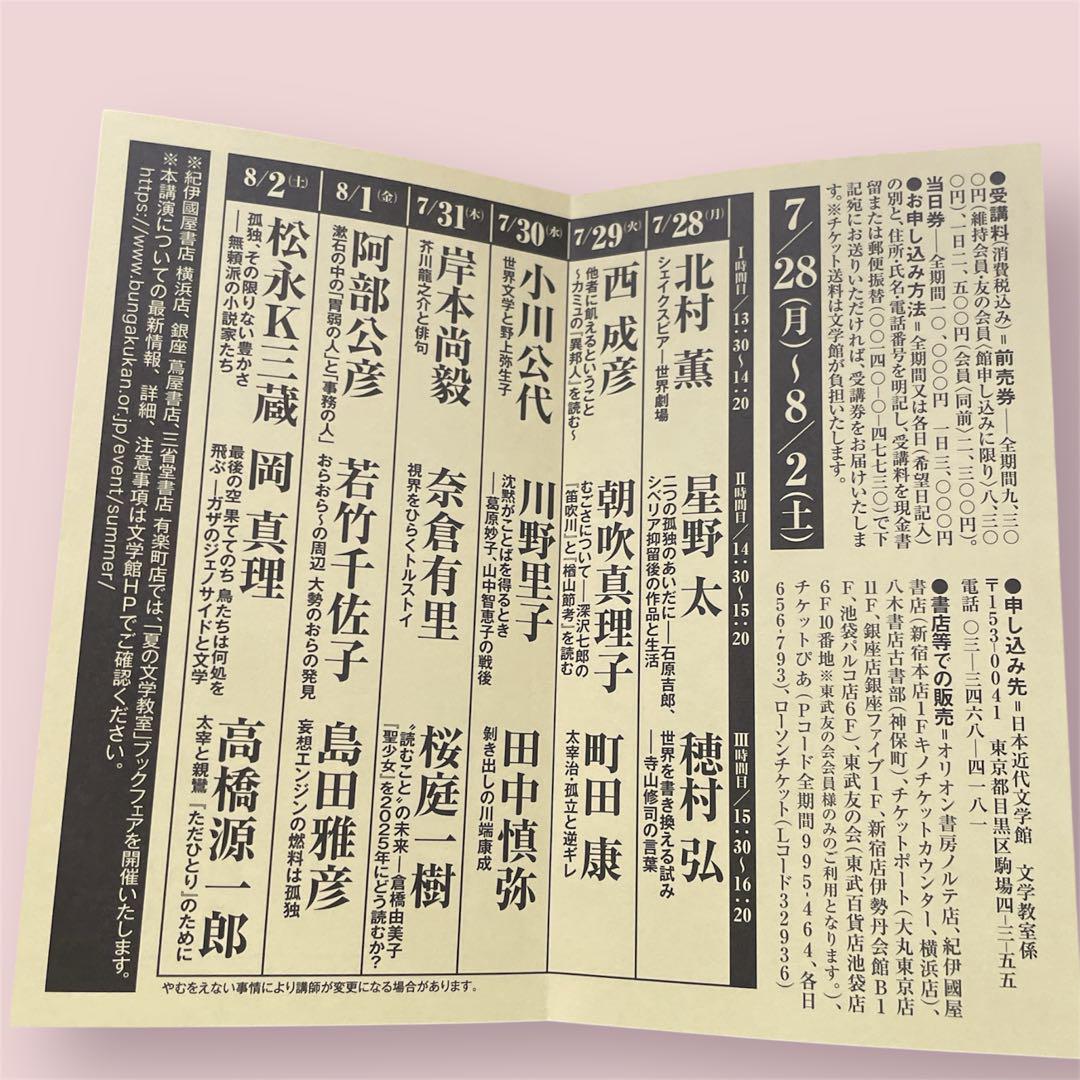 ●受講料(消費税込み)=前売券――全期間九、三〇
〇円(維持会員・友の会員(館申し込みに限り)八、三〇
〇円)、一日二、五〇〇円(会員(同前)二、三〇〇円)。
当日券――全期間一〇、〇〇〇円 一日三、〇〇〇円
●お申し込み方法=全期間又は各日(希望日記入)
の別と、住所・氏名・電話番号を明記し、受講料を現金書
留または郵便振替(〇〇一四〇-〇-四七七三〇)で下
記宛にお送りいただければ、受講券をお届けいたしま
す。※チケット送料は文学館が負担いたします。
7/28(月)〜8/2(土)
●申し込み先=日本近代文学館 文学教室係
〒153-0041 東京都目黒区駒場四-三-五五
電話 〇三-三四六八-四一八一
●書店等での販売=オリオン書房ノルテ店、紀伊國屋
書店(新宿本店1Fキノチケットカウンター、横浜店)、
八木書店古書部(神保町)、チケットポート(大丸東京店
11F、銀座店銀座ファイブ1F、新宿店伊勢丹会館B1
F、池袋パルコ店6F)、東武友の会(東武百貨店池袋店
6F10番地※東武友の会会員様のみのご利用となります。)、
チケットぴあ(Pコード全期間995-464、各日
656-793)、ローソンチケット(Lコード32936)
I時間目/13:30〜14:20
II時間目/14:30〜15:20
III時間目/15:30〜16:20
7/28(月)
北村 薫
シェイクスピア―世界劇場
星野 太
二つの孤独のあいだに――石原吉郎、
シベリア抑留後の作品と生活
穂村 弘
世界を書き換える試み
――寺山修司の言葉
7/29(火)
西 成彦
他者に飢えるということ
〜カミュの『異邦人』を読む〜
朝吹真理子
むごさについて――深沢七郎の
『笛吹川』と『楢山節考』を読む
町田 康
太宰治・孤立と逆ギレ
7/30(水)
小川公代
世界文学と野上弥生子
川野里子
沈黙がことばを得るとき
――葛原妙子、山中智恵子の戦後
田中慎弥
剝き出しの川端康成
7/31(木)
岸本尚毅
芥川龍之介と俳句
奈倉有里
視界をひらくトルストイ
桜庭一樹
“読むこと”の未来――倉橋由美子
『聖少女』を2025年にどう読むか?
8/1(金)
阿部公彦
漱石の中の「胃弱の人」と「事務の人」
若竹千佐子
おらおら〜の周辺 大勢のおらの発見
島田雅彦
妄想エンジンの燃料は孤独
8/2(土)
松永K三蔵
孤独、その限りない豊かさ
――無頼派の小説家たち
岡 真理
最後の空 果ててのち 鳥たちは何処を
飛ぶ――ガザのジェノサイドと文学
高橋源一郎
太宰と親鸞 『ただひとり』のために
やむをえない事情により講師が変更になる場合があります。
※紀伊國屋書店 横浜店、銀座 蔦屋書店、三省堂書店 有楽町店では、「夏の文学教室」ブックフェアを開催いたします。
※本講演についての最新情報、詳細、注意事項は文学館HPでご確認ください。
https://www.bungakukan.or.jp/event/summer/